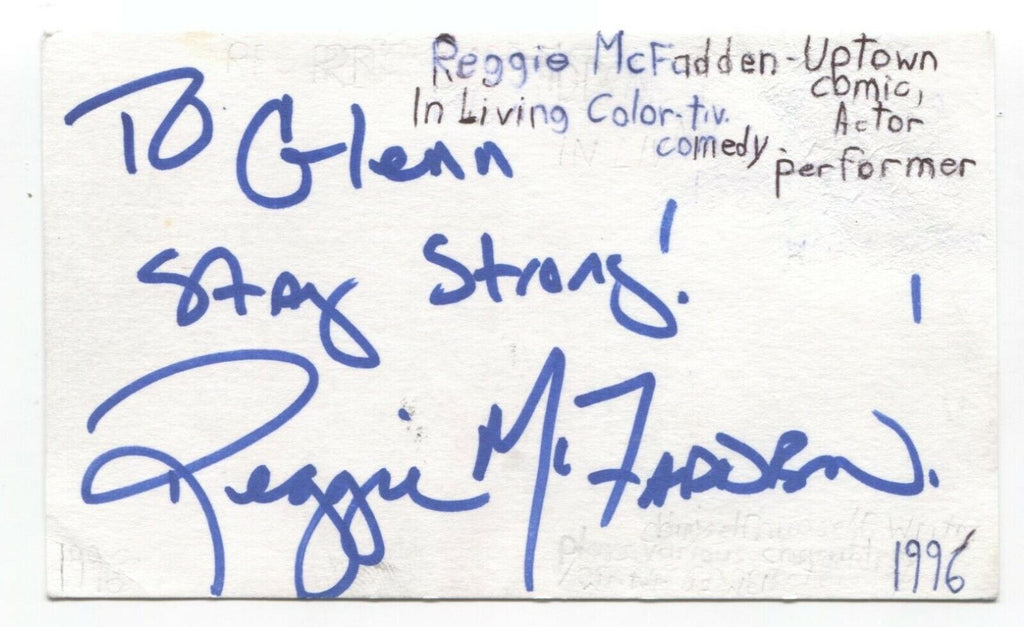 Reggie McFadden-Uptown
comic,
In Living Color-t.v.
Actor
comedy.
performer
To Glenn
Stay Strong!
Reggie McFadden.
1996
1996